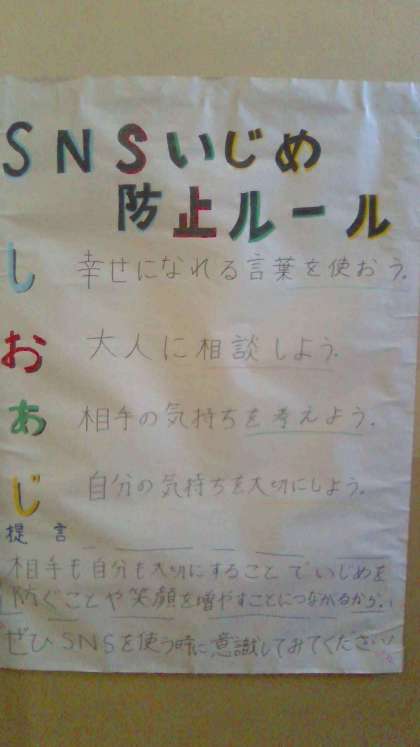 SNSいじめ
防止ルール
し 幸せになれる言葉を使おう。
お 大人に相談しよう。
あ 相手の気持ちを考えよう。
じ 自分の気持ちを大切にしよう。
提言
相手も自分も大切にすることでいじめを
防ぐことや笑顔を増やすことにつながるから、
ぜひSNSを使う時に意識してみてください!